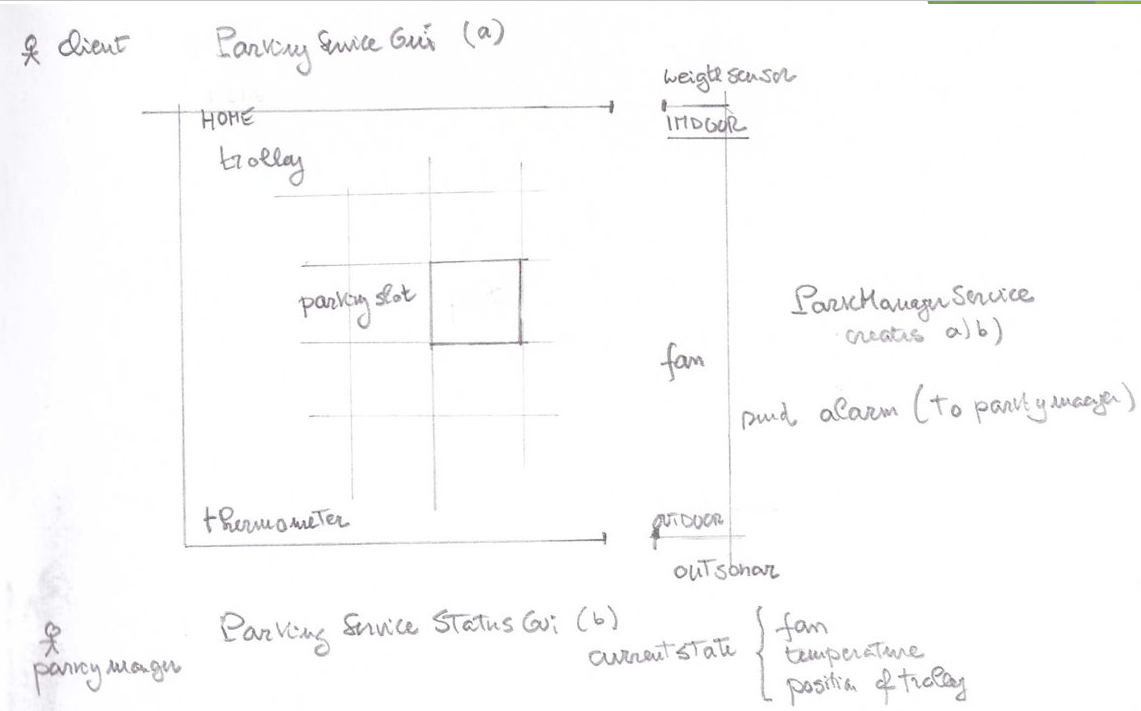 client
Parking Service Gui (a)
weight sensor
HOME
INDOOR
trolley
parking slot
ParkManagerService
creates a) b)
fan
send alarm (to parking manager)
thermometer
OUTDOOR
OUTsonar
Parking Service Status Gui (b)
current state { fan
temperature
position of trolley
parking manager